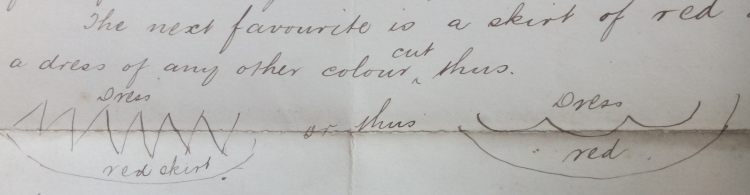 The next favourite is a skirt of red
a dress of any other colour cut thus.
Dress Dress
or thus
red skirt. red